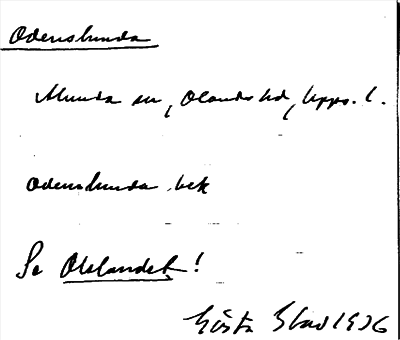 Odenslunda
Alunda sn, Olands hd, Upps. l.
Odenslunda bek
Se Ololandet!
Gösta 1936